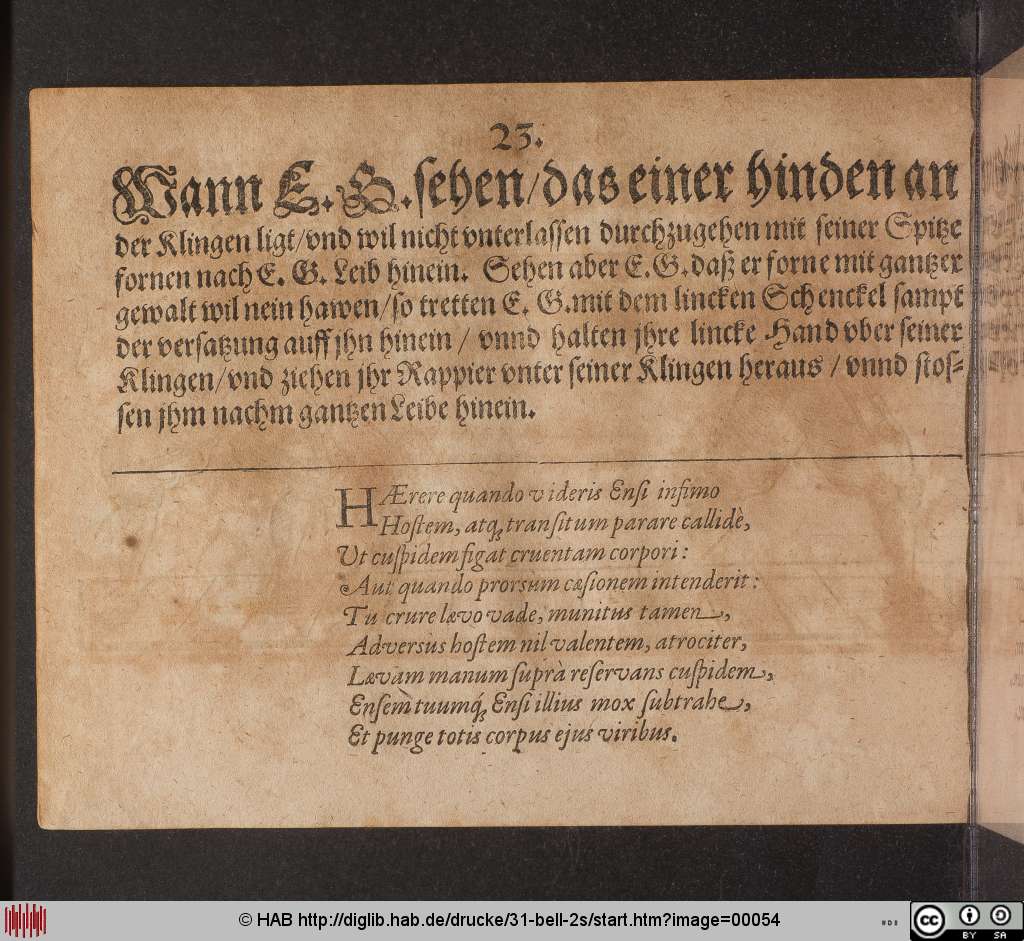 23.
Wann E. G. sehen/das einer hinden an
der Klingen ligt/vnd wil nicht vnterlassen durchzugehen mit seiner Spitze
fornen nach E. G. Leib hinein. Sehen aber E. G. daß er forne mit gantzer
gewalt wil nein hawen/so tretten E. G. mit dem lincken Schenckel sampt
der versatzung auff jhn hinein / vnnd halten jhre lincke Hand vber seiner
Klingen/vnd ziehen jhr Rappier vnter seiner Klingen heraus / vnnd stos-
sen jhm nachm gantzen Leibe hinein.
HÆrere quando videris Ensi infimo
Hostem, atq́; transitum parare callidè,
Ut cuspidem figat cruentam corpori:
Aut quando prorsum cæsionem intenderit:
Tu crure lævo vade, munitus tamen,
Adversus hostem nil valentem, atrociter,
Lævam manum suprà reservans cuspidem,
Ensem tuumq́; Ensi illius mox subtrahe,
Et punge totis corpus ejus viribus.
© HAB http://diglib.hab.de/drucke/31-bell-2s/start.htm?image=00054
cc BY SA